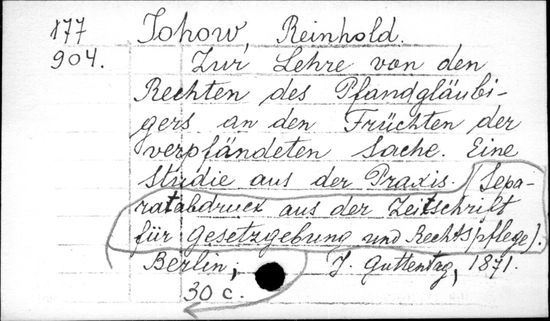 177 Johow, Reinhold.
904. Zur Lehre von den
Rechten des Pfandgläubi-
gers an den Früchten der
verpfändeten Sache. Eine
Studie aus der Praxis. (Sepa-
ratabdruck aus der Zeitschrift
für Gesetzgebung und Rechts(pflege).
Berlin, J. Guttentag, 1871.
30 c.